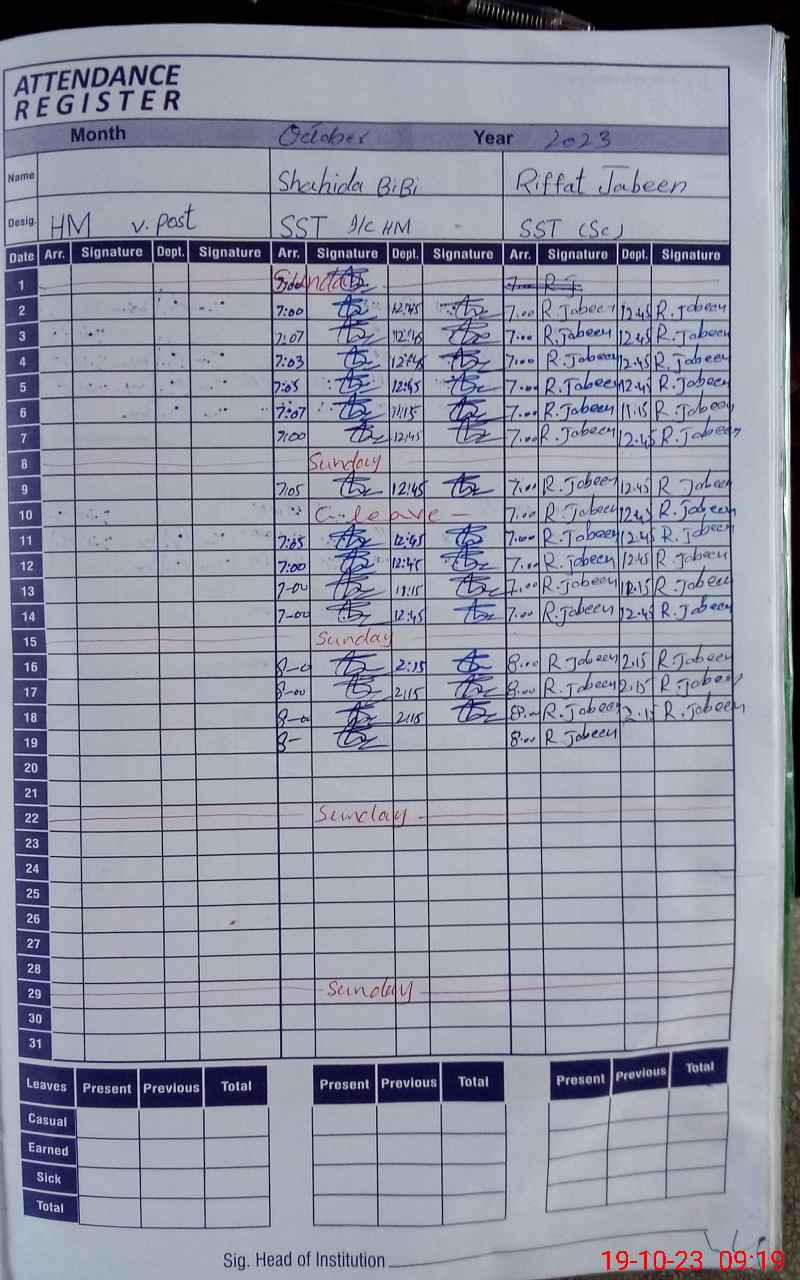 ATTENDANCE
REGISTER
Month October Year 2023
Name Shahida BiBi Riffat Jabeen
Desig. HM v. post SST I/C HM SST (Sc)
Date Arr. Signature Dept. Signature Arr. Signature Dept. Signature Arr. Signature Dept. Signature
1 Sunday 7.00 R.J
2 7:00 12:45 7.00 R.Jabeen 12.45 R.Jabeen
3 7:07 12:45 7.00 R.Jabeen 12.45 R.Jabeen
4 7:03 12:45 7.00 R.Jabeen 12.45 R.Jabeen
5 7:05 12:45 7.00 R.Jabeen 12.45 R.Jabeen
6 7:07 11:15 7.00 R.Jabeen 11.15 R.Jabeen
7 7:00 12:45 7.00 R.Jabeen 12.45 R.Jabeen
8 Sunday
9 7:05 12:45 7.00 R.Jabeen 12.45 R Jabeen
10 C. leave - 7.00 R.Jabeen 12.45 R.Jabeen
11 7:05 12:45 7.00 R.Jabeen 12.45 R.Jabeen
12 7:00 12:45 7.00 R.Jabeen 12.45 R.Jabeen
13 7-00 11:15 7.00 R.Jabeen 11.15 R.Jabeen
14 7-00 12:45 7.00 R.Jabeen 12.45 R.Jabeen
15 Sunday
16 8-0 2:15 8.00 R.Jabeen 2.15 R.Jabeen
17 8-00 2:15 8.00 R.Jabeen 2.15 R.Jabeen
18 8-00 2:15 8.00 R.Jabeen 2.15 R.Jabeen
19 8- 8.00 R.Jabeen
20
21
22 Sunday
23
24
25
26
27
28
29 Sunday
30
31
Leaves Present Previous Total Present Previous Total Present Previous Total
Casual
Earned
Sick
Total
Sig. Head of Institution
19-10-23 09:19